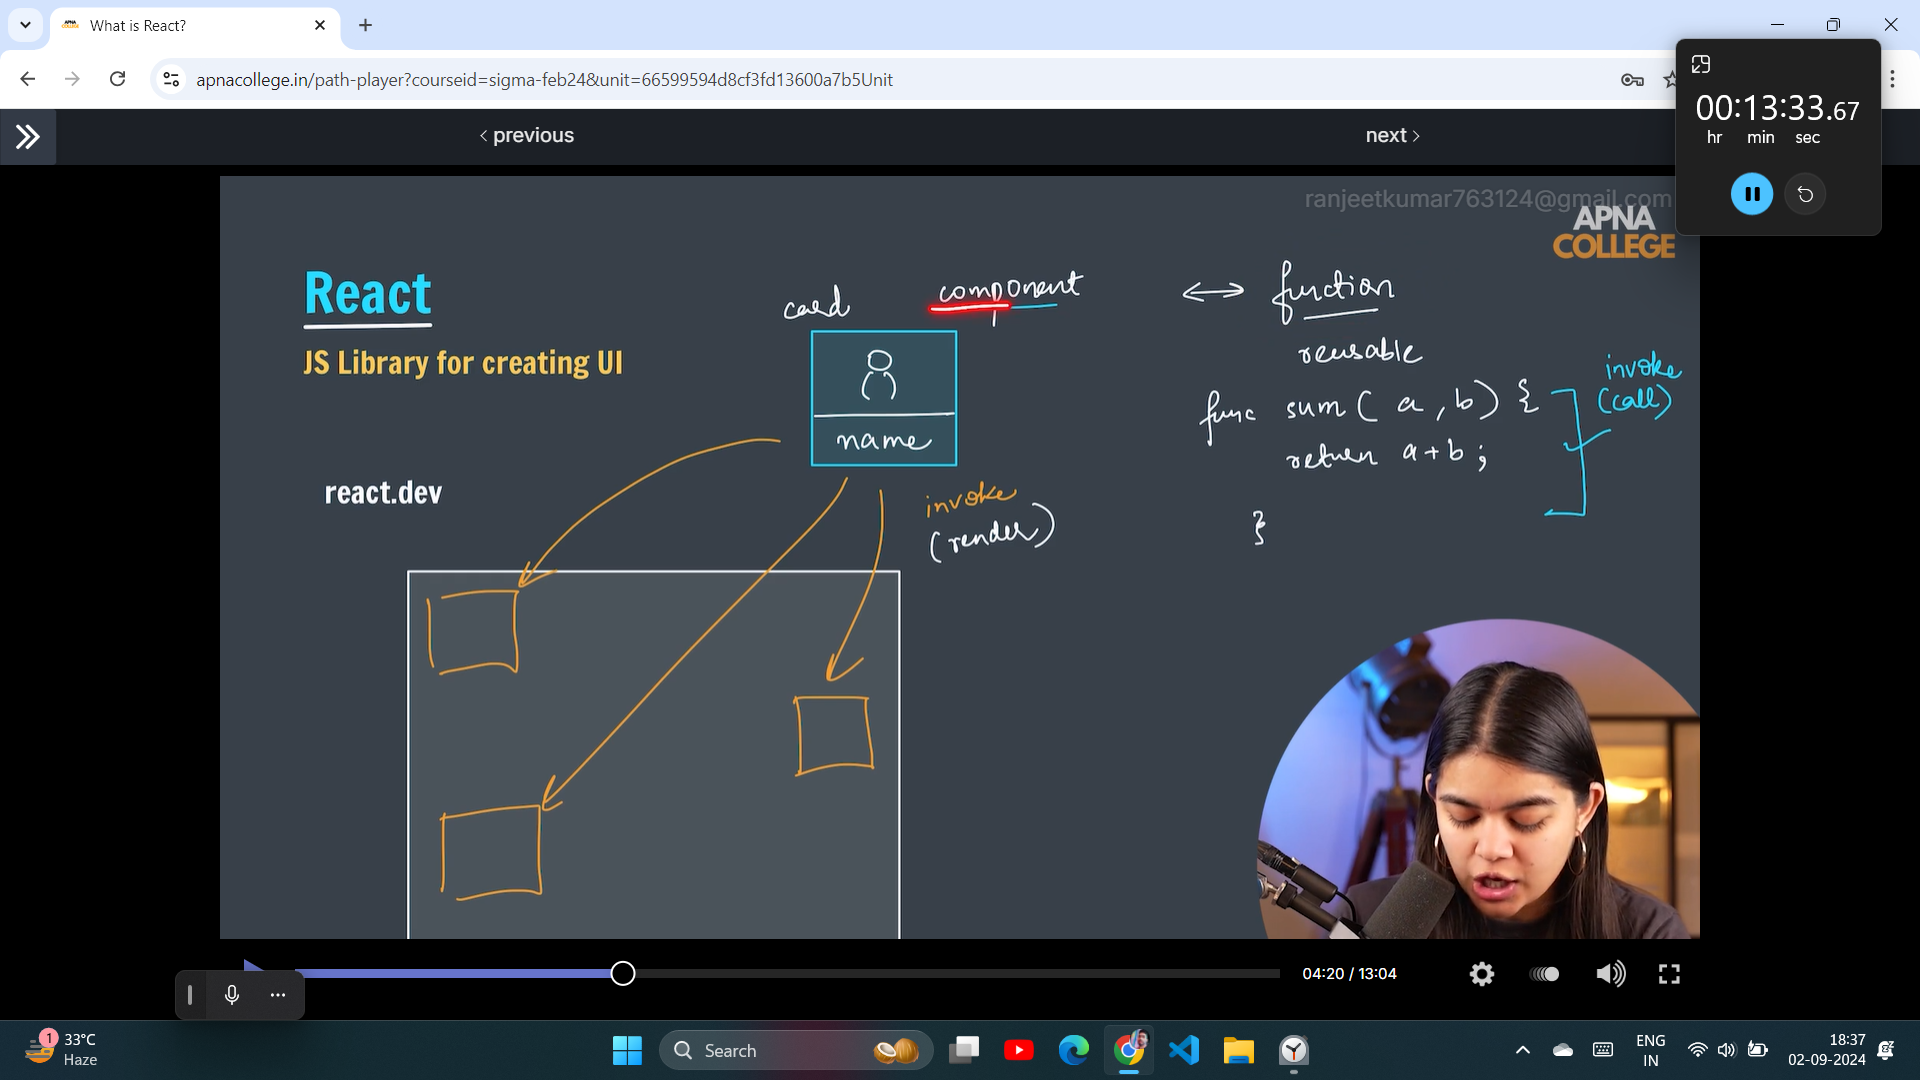 What is React?
apnacollege.in/path-player?courseid=sigma-feb24&unit=66599594d8cf3fd13600a7b5Unit
00:13:33.67
hr min sec
‹ previous
next ›
ranjeetkumar763124@gmail.com
APNA
COLLEGE
React
JS Library for creating UI
react.dev
card
component
function
reusable
name
invoke
(render)
func sum ( a , b ) {
return a + b ;
}
invoke
(call)
04:20 / 13:04
1
33°C
Haze
Search
ENG
IN
18:37
02-09-2024